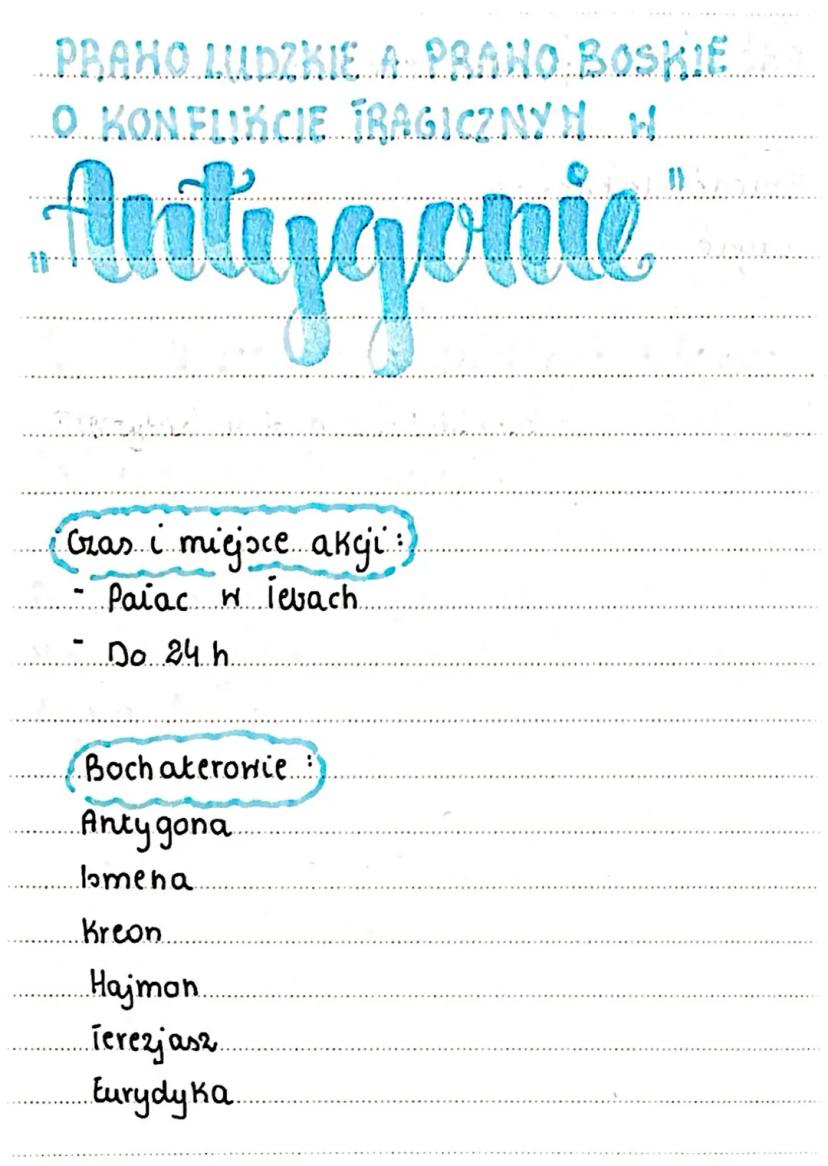 PRAWO LUDZKIE A PRAWO BOSKIE
O KONFLIKCIE TRAGICZNYM W
„Antygonie"
Czas i miejsce akcji:
- Pałac w Tebach
- Do 24 h
Bochaterowie:
Antygona
Ismena
Kreon
Hajmon
Terezjasz
Eurydyka